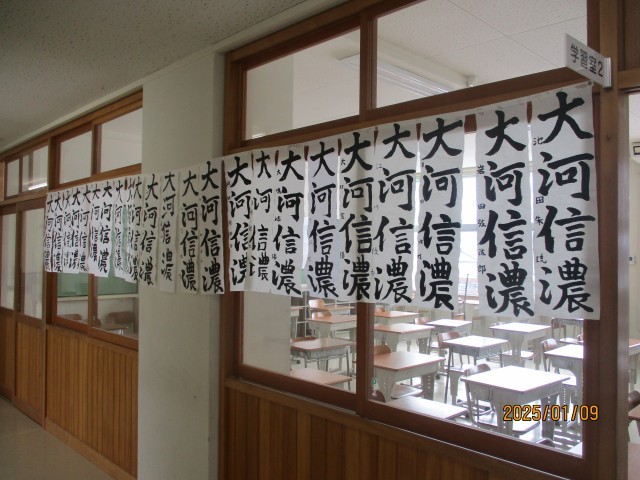 学習室2
大河信濃
大河信濃
岩田
大河信濃
大河信濃
大河信濃
大河信濃
大河信濃
大河信濃
大河信濃
大河信濃
大河信濃
大河信濃
大河信濃
大河信濃
大河信濃
大河信濃
大河信濃
大河信濃
大河信濃
大河信濃
2025/01/09